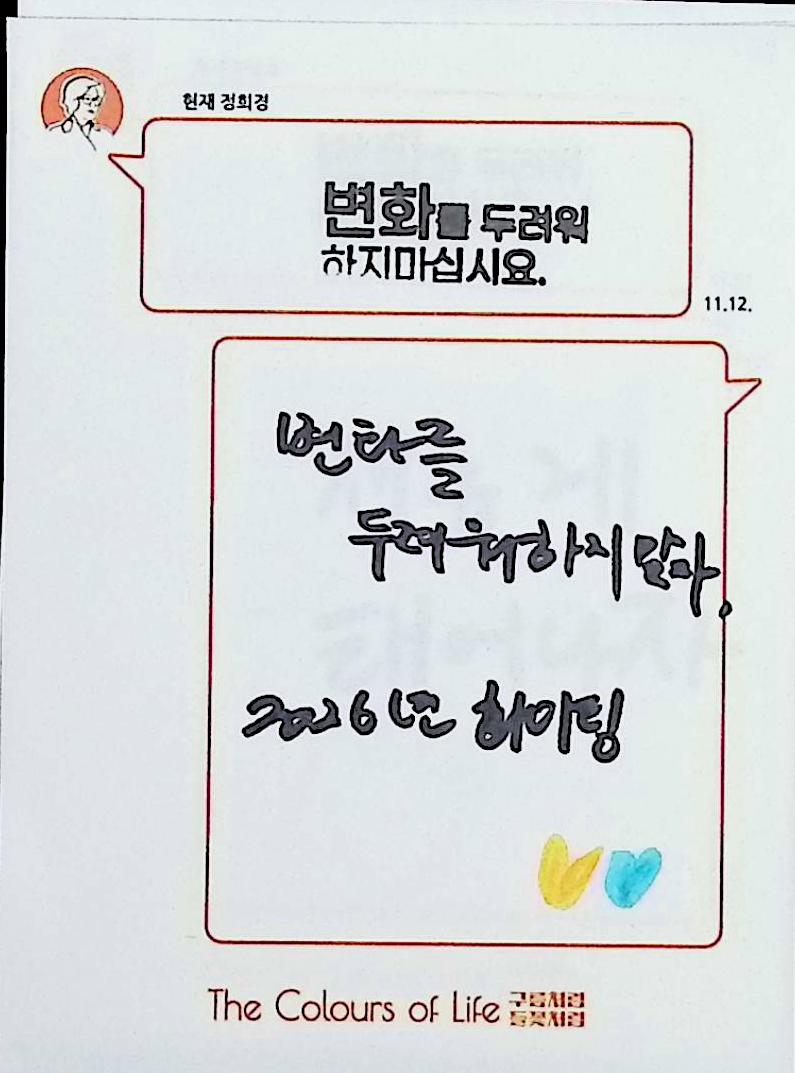 현재 정희경
변화를 두려워
하지마십시요.
11.12.
변화를
두려워하지 말자,
2026년 화이팅
The Colours of Life 구름처럼
들꽃처럼